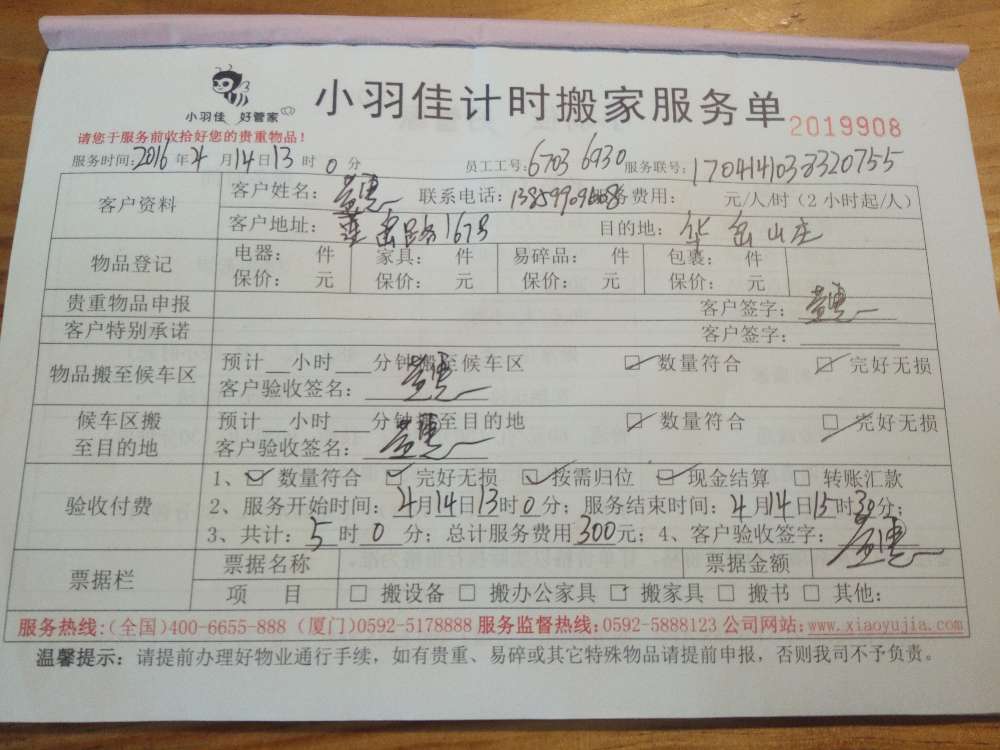 小羽佳 好管家
小羽佳计时搬家服务单 2019908
请您于服务前收拾好您的贵重物品！
服务时间：2016年4月14日13时0分 员工工号：6703 6930 服务联号：1704141033320755
客户资料 客户姓名： 联系电话： 务费用： 元/人/时（2小时起/人）
客户地址： 岳路167号 目的地：华岳山庄
物品登记 电器： 件 家具： 件 易碎品： 件 包裹： 件
保价： 元 保价： 元 保价： 元 保价： 元
贵重物品申报 客户签字：
客户特别承诺 客户签字：
物品搬至候车区 预计 小时 分钟搬至候车区 ☑ 数量符合 ☑ 完好无损
客户验收签名：
候车区搬至目的地 预计 小时 分钟搬至目的地 ☑ 数量符合 ☑ 完好无损
客户验收签名：
验收付费 1、☑ 数量符合 ☑ 完好无损 ☑ 按需归位 ☑ 现金结算 □ 转账汇款
2、服务开始时间：4月14日13时0分；服务结束时间：4月14日15时30分；
3、共计：5时0分；总计服务费用300元；4、客户验收签字：
票据栏 票据名称 票据金额
项 目 □ 搬设备 □ 搬办公家具 □ 搬家具 □ 搬书 □ 其他：
服务热线：(全国)400-6655-888（厦门)0592-5178888 服务监督热线：0592-5888123 公司网站：www.xiaoyujia.com
温馨提示：请提前办理好物业通行手续，如有贵重、易碎或其它特殊物品请提前申报，否则我司不予负责。